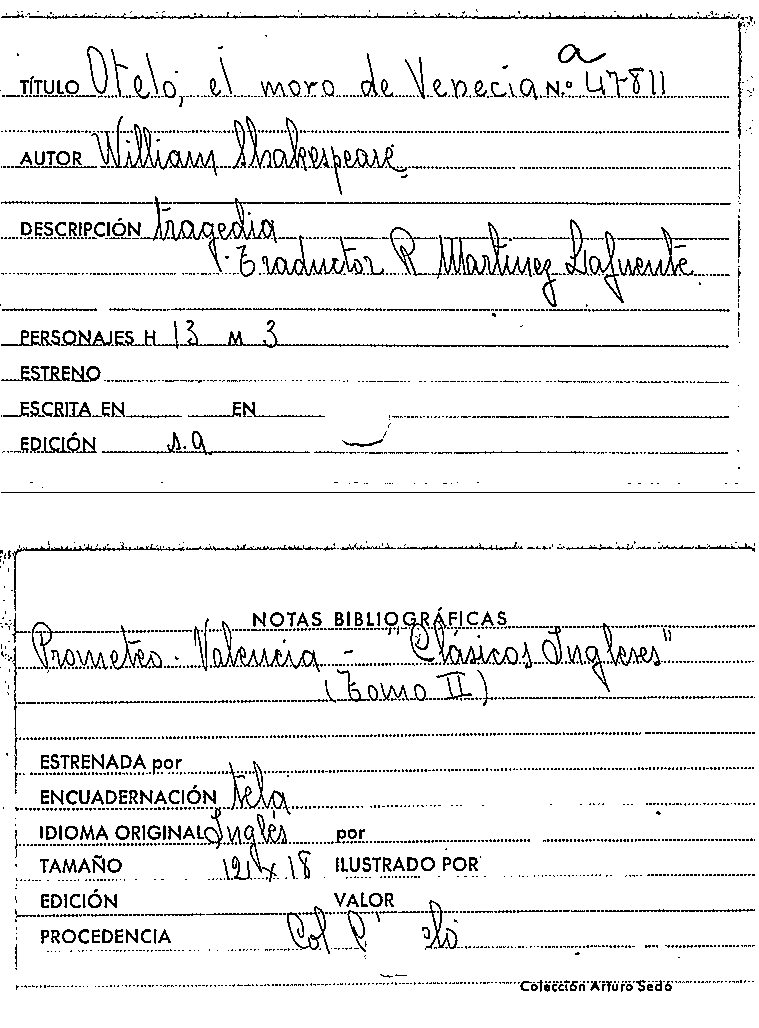 a
TÍTULO Otelo, el moro de Venecia N.º 47811
AUTOR William Shakespeare
DESCRIPCIÓN tragedia
Traductor R Martinez Lafuente
PERSONAJES H 13 M 3
ESTRENO
ESCRITA EN EN
EDICIÓN s.a
NOTAS BIBLIOGRÁFICAS
Prometeo - Valencia - "Clásicos Ingleses"
(Tomo II)
ESTRENADA por
ENCUADERNACIÓN tela
IDIOMA ORIGINAL Inglés por
TAMAÑO 12 x 18 ILUSTRADO POR
EDICIÓN VALOR
PROCEDENCIA Col
Colección Arturo Sedó